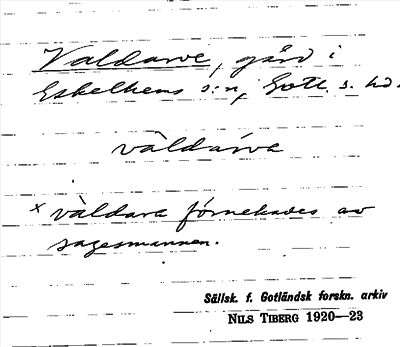 Valdarve, gård i
Eskelhems s:n, Gotl. s. hd.
vàldárva
x vàldara förnekades av
sagesmannen.
Sällsk. f. Gotländsk forskn. arkiv
NILS TIBERG 1920—23